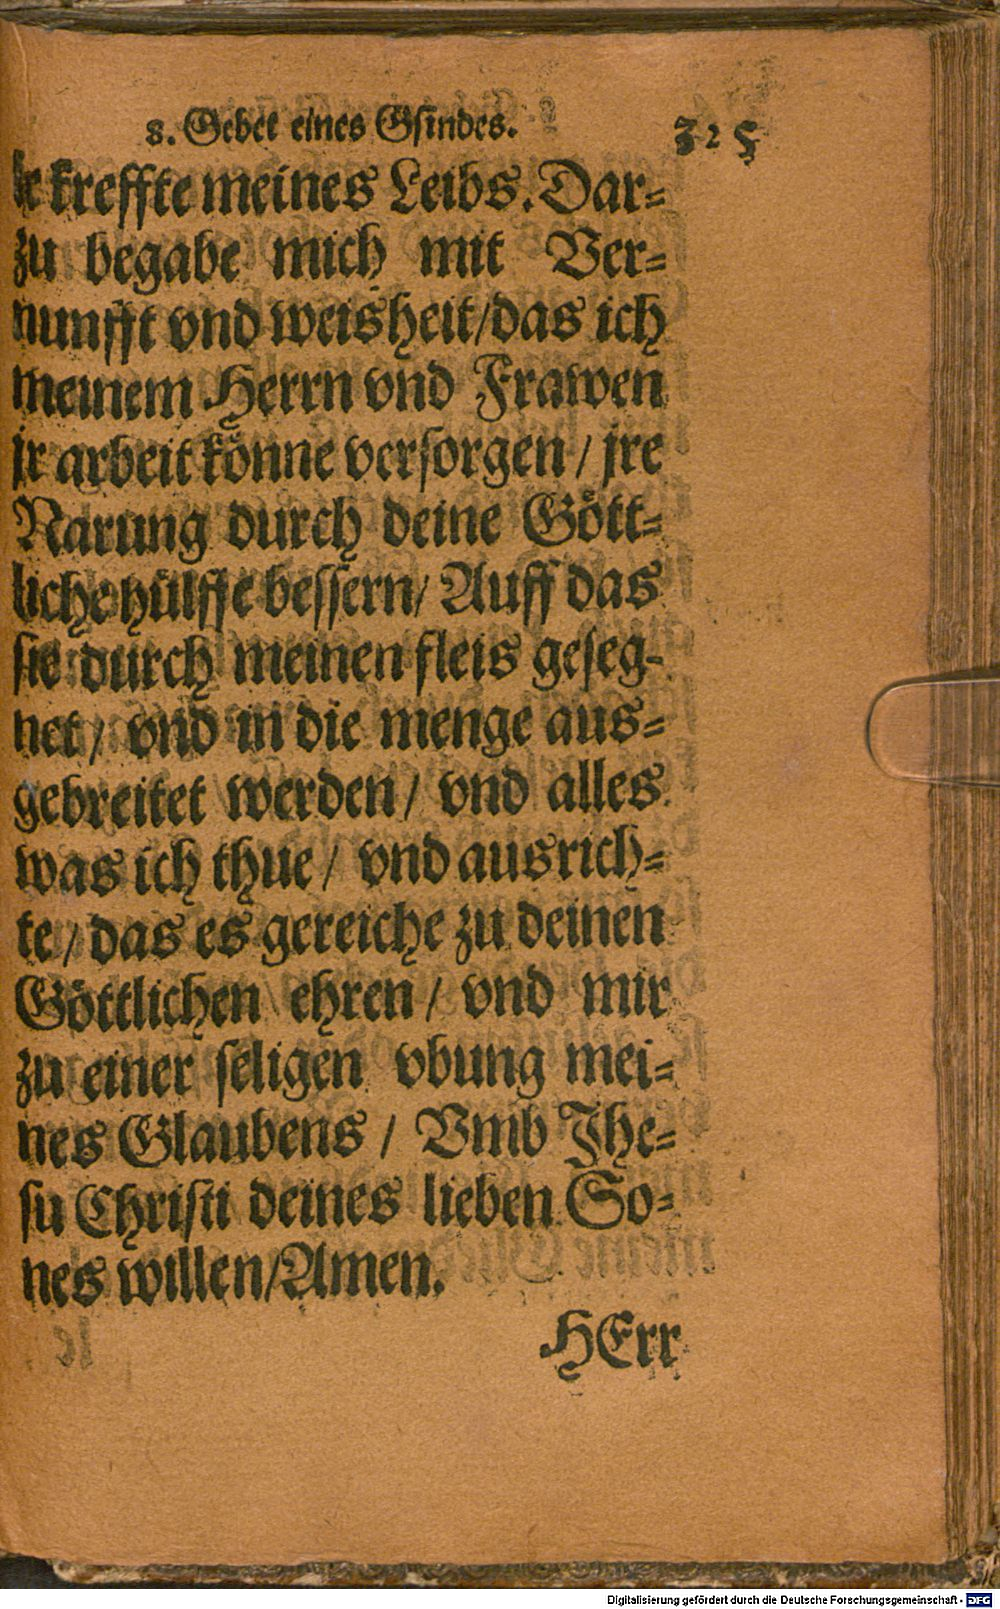 8. Gebet eines Gsindes. 325
le kreffte meines Leibs. Dar=
zu begabe mich mit Ver=
nunfft vnd weisheit/das ich
meinem Herrn vnd Frawen
jr arbeit könne versorgen / jre
Narung durch deine Gött=
liche hülffe bessern/ Auff das
sie durch meinen fleis geseg=
net / vnd in die menge aus=
gebreitet werden / vnd alles
was ich thue / vnd ausrich=
te / das es gereiche zu deinen
Göttlichen ehren / vnd mir
zu einer seligen vbung mei=
nes Glaubens / Vmb Jhe=
su Christi deines lieben So=
nes willen/Amen.
HErr
Digitalisierung gefördert durch die Deutsche Forschungsgemeinschaft - DFG